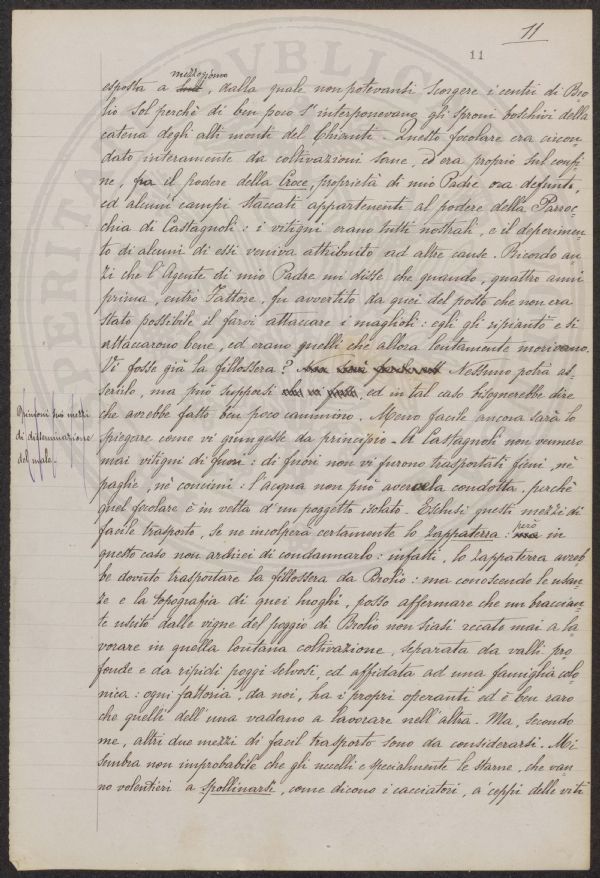 11
11
mezzogiorno
esposta a sud, dalla quale non potevansi scorgere i centri di Bro
lio sol perchè di ben poco s'interponevano gli sproni boschivi della
catena degli alti monti del Chianti. Questo focolare era circon-
dato interamente da coltivazioni sane, ed era proprio sul confi-
ne, fra il podere della Croce, proprietà di mio Padre ora defunto,
ed alcuni campi staccati appartenenti al podere della Parroc-
chia di Castagnoli: i vitigni erano tutti nostrali, e il deperimen-
to di alcuni di essi veniva attribuito ad altre cause. Ricordo an-
zi che l'Agente di mio Padre mi disse che quando, quattro anni
prima, entrò Fattore, fu avvertito da quei del posto che non era
stato possibile il farvi attaccare i maglioli: egli gli ripiantò e si
attaccarono bene, ed erano quelli che allora lentamente morivano.
Vi fosse già la fillossera? Nessuno potrà as-
serirlo, ma può supporsi ed in tal caso bisognerebbe dire
che avrebbe fatto ben poco cammino. Meno facile ancora sarà lo
spiegare come vi giungesse da principio. A Castagnoli non vennero
mai vitigni di fuori: di fuori non vi furono trasportati fieni, nè
paglie, nè concimi: l'acqua non può avercela condotta, perchè
quel focolare è in vetta d'un poggetto isolato. Esclusi questi mezzi di
facile trasporto, se ne incolperà certamente lo zappaterra: però in
questo caso non ardirei di condannarlo: infatti, lo zappaterra avreb-
be dovuto trasportare la fillossera da Brolio: ma conoscendo le usan-
ze e la topografia di quei luoghi, posso affermare che un braccian-
te uscito dalle vigne del poggio di Brolio non siasi recato mai a la-
vorare in quella lontana coltivazione, separata da valli pro-
fonde e da ripidi poggi selvosi, ed affidata ad una famiglia colo-
nica: ogni fattoria, da noi, ha i propri operanti ed è ben raro
che quelli dell'una vadano a lavorare nell'altra. Ma, secondo
me, altri due mezzi di facil trasporto sono da considerarsi. Mi
sembra non improbabile che gli uccelli e specialmente le starne, che van-
no volentieri a spollinarsi, come dicono i cacciatori, a' ceppi delle viti
Opinioni sui mezzi
di disseminazione
del male.